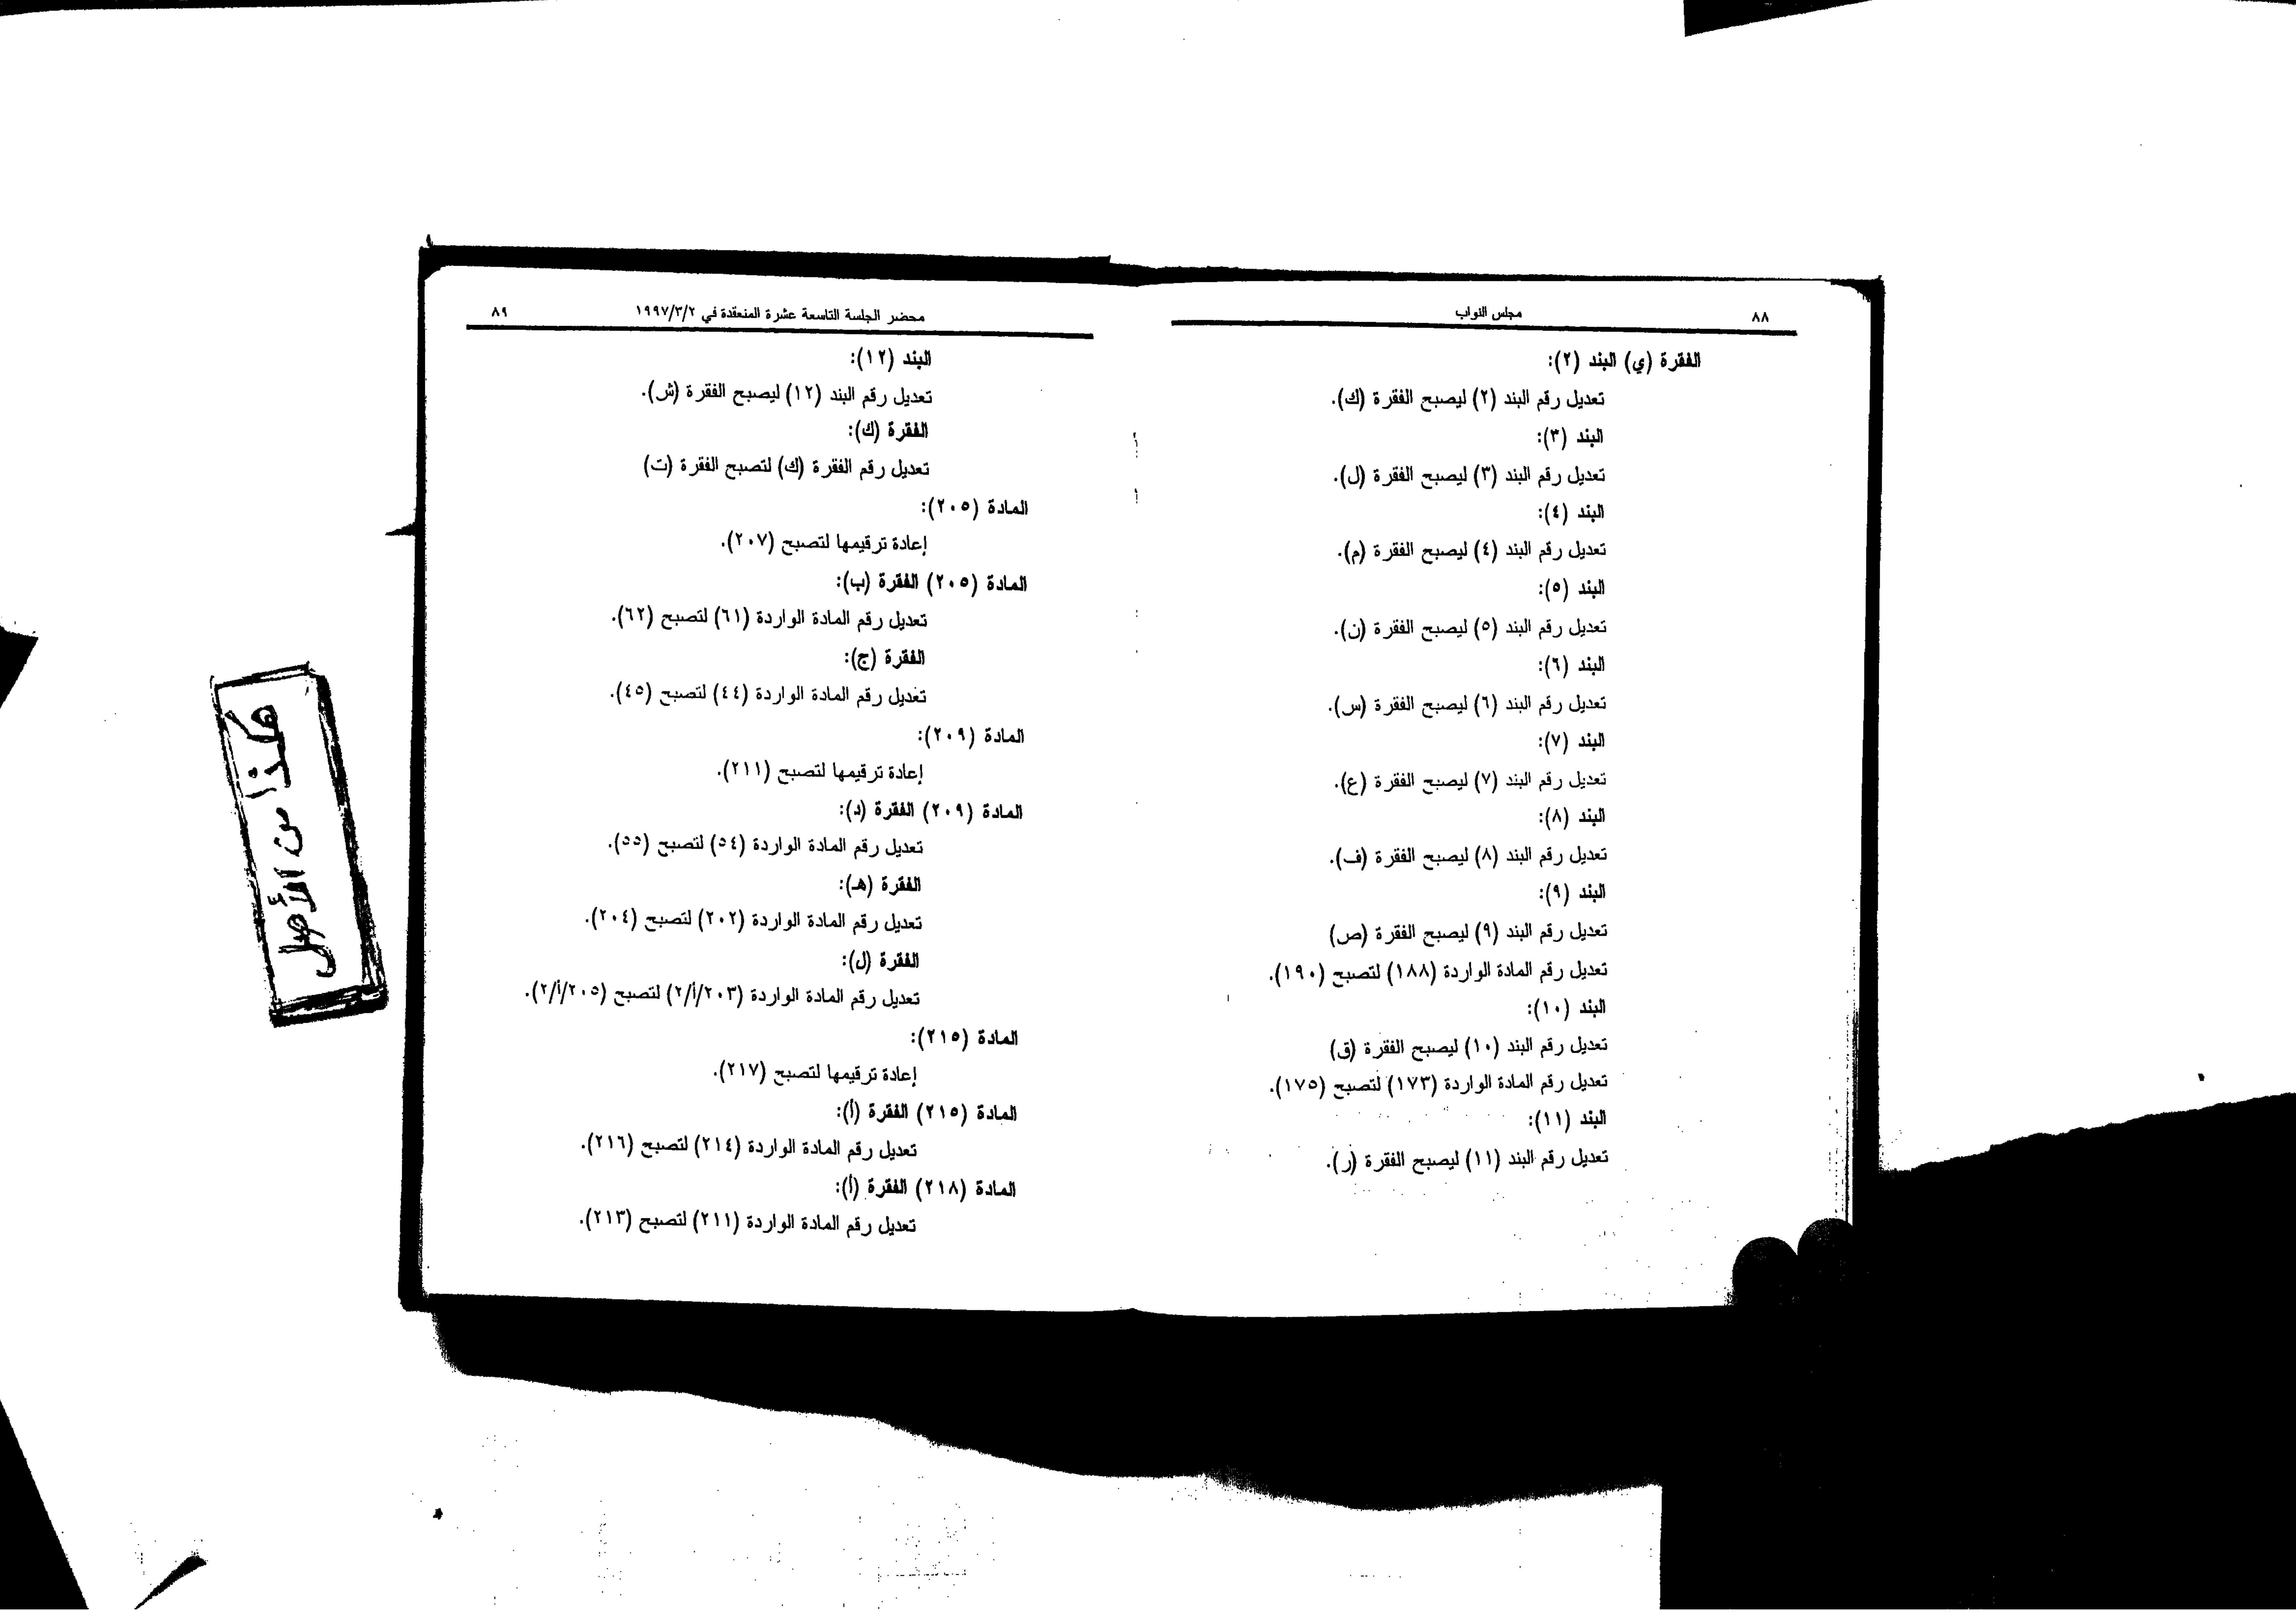 مجلس النواب ٨٨
الفقرة (ي) البند (٢):
تعديل رقم البند (٢) ليصبح الفقرة (ك).
البند (٣):
تعديل رقم البند (٣) ليصبح الفقرة (ل).
البند (٤):
تعديل رقم البند (٤) ليصبح الفقرة (م).
البند (٥):
تعديل رقم البند (٥) ليصبح الفقرة (ن).
البند (٦):
تعديل رقم البند (٦) ليصبح الفقرة (س).
البند (٧):
تعديل رقم البند (٧) ليصبح الفقرة (ع).
البند (٨):
تعديل رقم البند (٨) ليصبح الفقرة (ف).
البند (٩):
تعديل رقم البند (٩) ليصبح الفقرة (ص)
تعديل رقم المادة الواردة (١٨٨) لتصبح (١٩٠).
البند (١٠):
تعديل رقم البند (١٠) ليصبح الفقرة (ق)
تعديل رقم المادة الواردة (١٧٣) لتصبح (١٧٥).
البند (١١):
تعديل رقم البند (١١) ليصبح الفقرة (ر).
محضر الجلسة التاسعة عشرة المنعقدة في ١٩٩٧/٣/٢ ٨٩
البند (١٢):
تعديل رقم البند (١٢) ليصبح الفقرة (ش).
الفقرة (ك):
تعديل رقم الفقرة (ك) لتصبح الفقرة (ت)
المادة (٢٠٥):
إعادة ترقيمها لتصبح (٢٠٧).
المادة (٢٠٥) الفقرة (ب):
تعديل رقم المادة الواردة (٦١) لتصبح (٦٢).
الفقرة (ج):
تعديل رقم المادة الواردة (٤٤) لتصبح (٤٥).
المادة (٢٠٩):
إعادة ترقيمها لتصبح (٢١١).
المادة (٢٠٩) الفقرة (د):
تعديل رقم المادة الواردة (٥٤) لتصبح (٥٥).
الفقرة (هـ):
تعديل رقم المادة الواردة (٢٠٢) لتصبح (٢٠٤).
الفقرة (ل):
تعديل رقم المادة الواردة (٢٠٣/أ/٢) لتصبح (٢٠٥/أ/٢).
المادة (٢١٥):
إعادة ترقيمها لتصبح (٢١٧).
المادة (٢١٥) الفقرة (أ):
تعديل رقم المادة الواردة (٢١٤) لتصبح (٢١٦).
المادة (٢١٨) الفقرة (أ):
تعديل رقم المادة الواردة (٢١١) لتصبح (٢١٣).
هكذا من الأصل